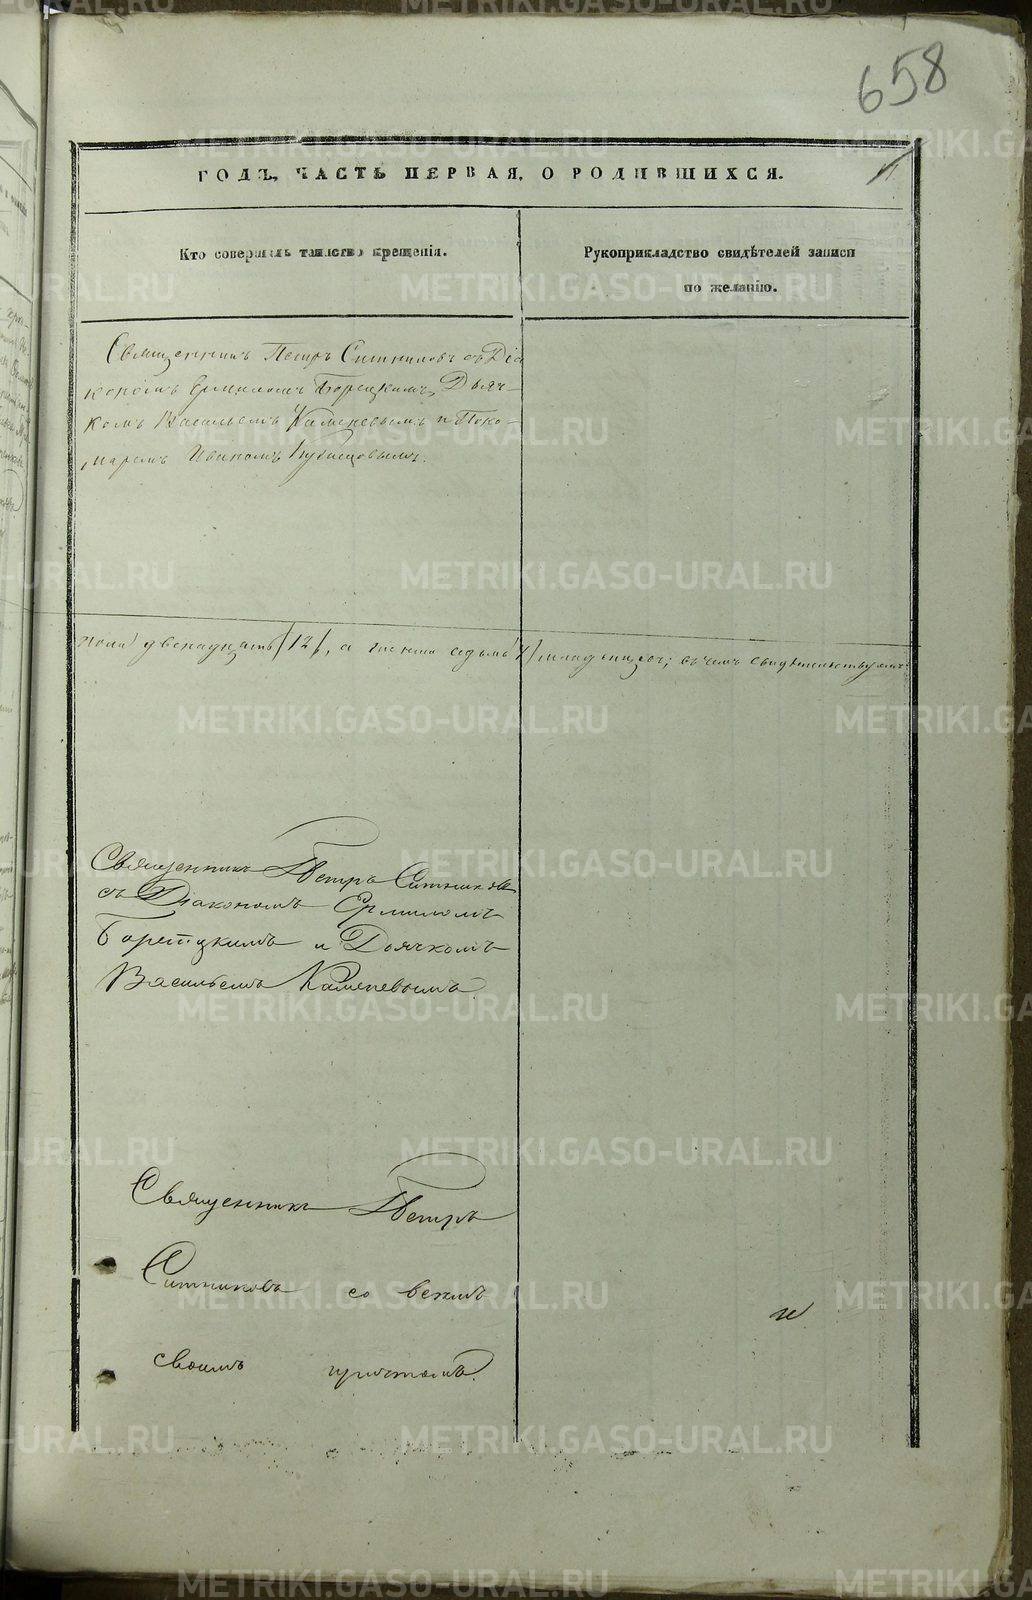 658
ГОДЪ, ЧАСТЬ ПЕРВАЯ, О РОДИВШИХСЯ.
Кто совершалъ таинство крещенія.
Рукоприкладство свидѣтелей записи
по желанію.
Священникъ Петръ Ситниковъ съ Діа
кономъ Ермиломъ Борецкимъ, Дьяч-
комъ Васильемъ Каменевымъ и Поно-
маремъ Иваномъ Кузнецовымъ.
пола двенадцать /12/, а женска седмь /7/ младенцевъ; въ чемъ свидѣтельствуемъ
Священникъ Петръ Ситниковъ
съ Діакономъ Ермиломъ
Борецкимъ и Дьячкомъ
Васильемъ Каменевымъ.
Священникъ Петръ
Ситниковъ со всѣмъ
своимъ причтомъ.
и
METRIKI.GASO-URAL.RU